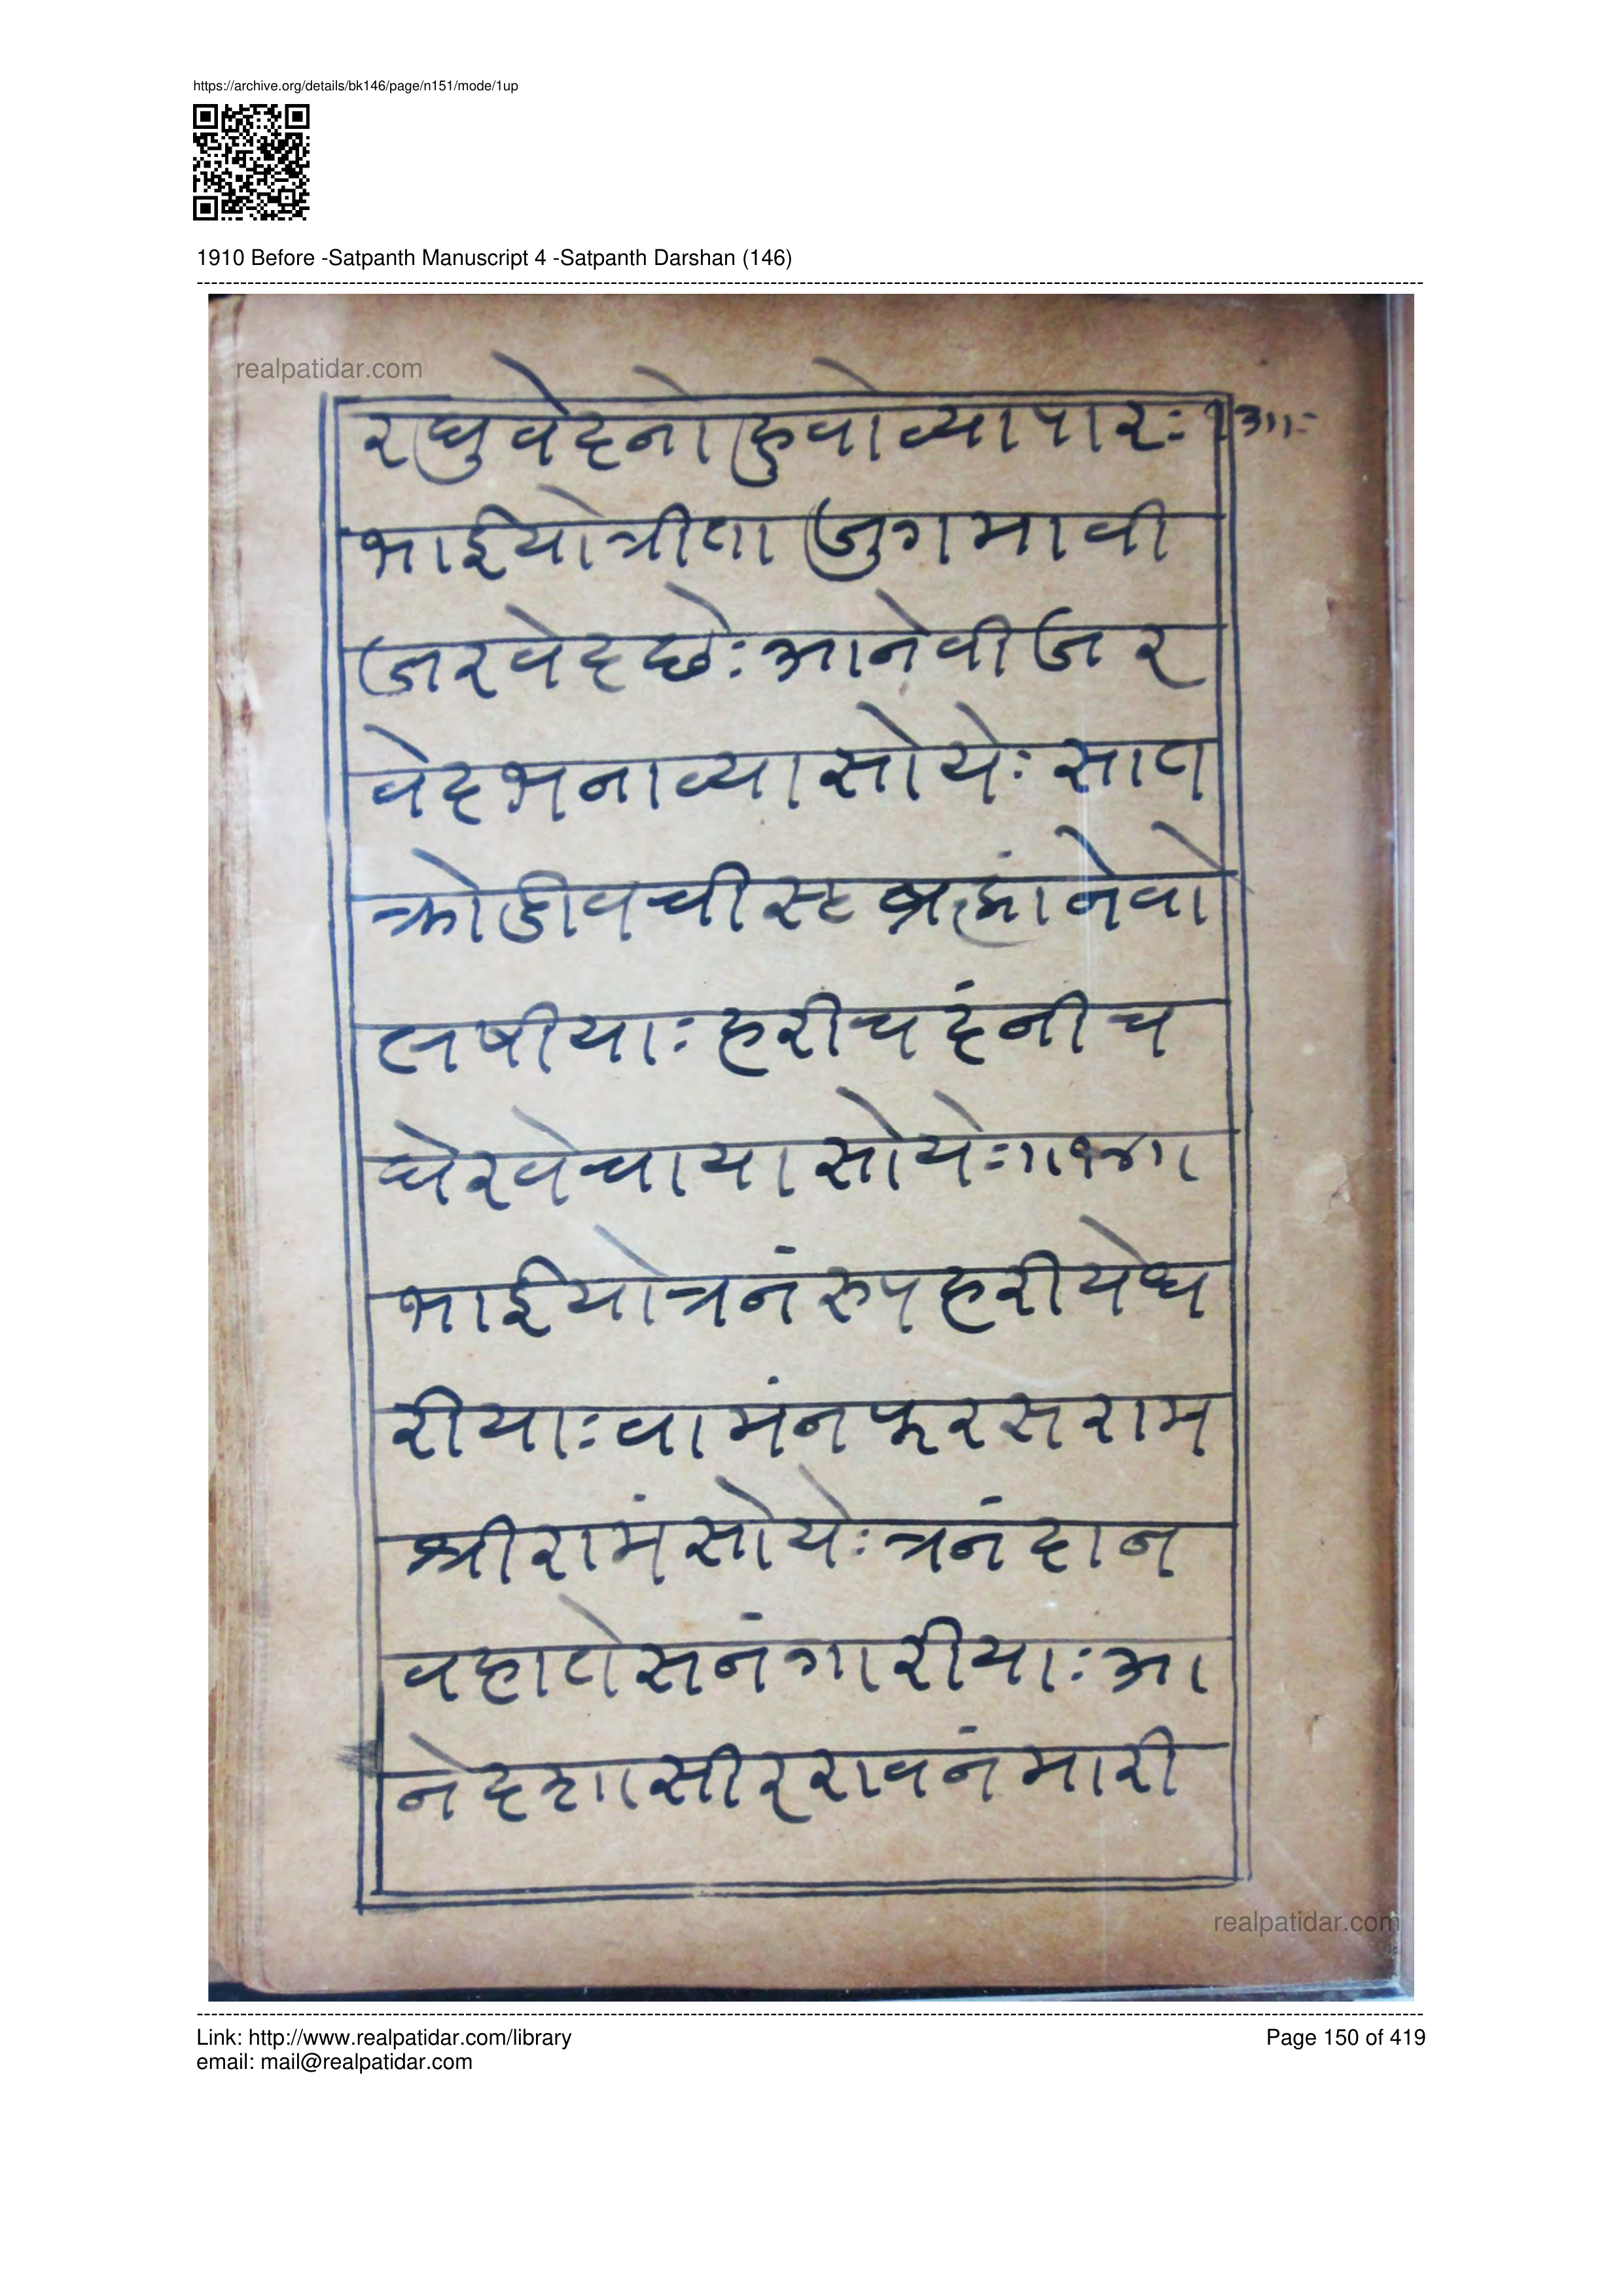 https://archive.org/details/bk146/page/n151/mode/1up
1910 Before -Satpanth Manuscript 4 -Satpanth Darshan (146)
realpatidar.com
रघुवेदनो हुवो व्यापारः
भाईयो त्रीता जुगमा वी
जरवेद छेः आने वीजर
वेद भनाव्या सोयेः सात
क्रोडी वचीस्ट ब्रह्मांने वो
लषीयाः हरीचदंनी च
घेर वेचाया सोयेः॥१४॥
भाईयो त्रनं रुप हरीये ध
रीयाः वामंन फरसराम
श्रीरामं सोयेः त्रनं दान
व हाते सनंगारीयाः आ
ने दशसीर रावनं मारी
realpatidar.com
Link: http://www.realpatidar.com/library
Page 150 of 419
email: mail@realpatidar.com